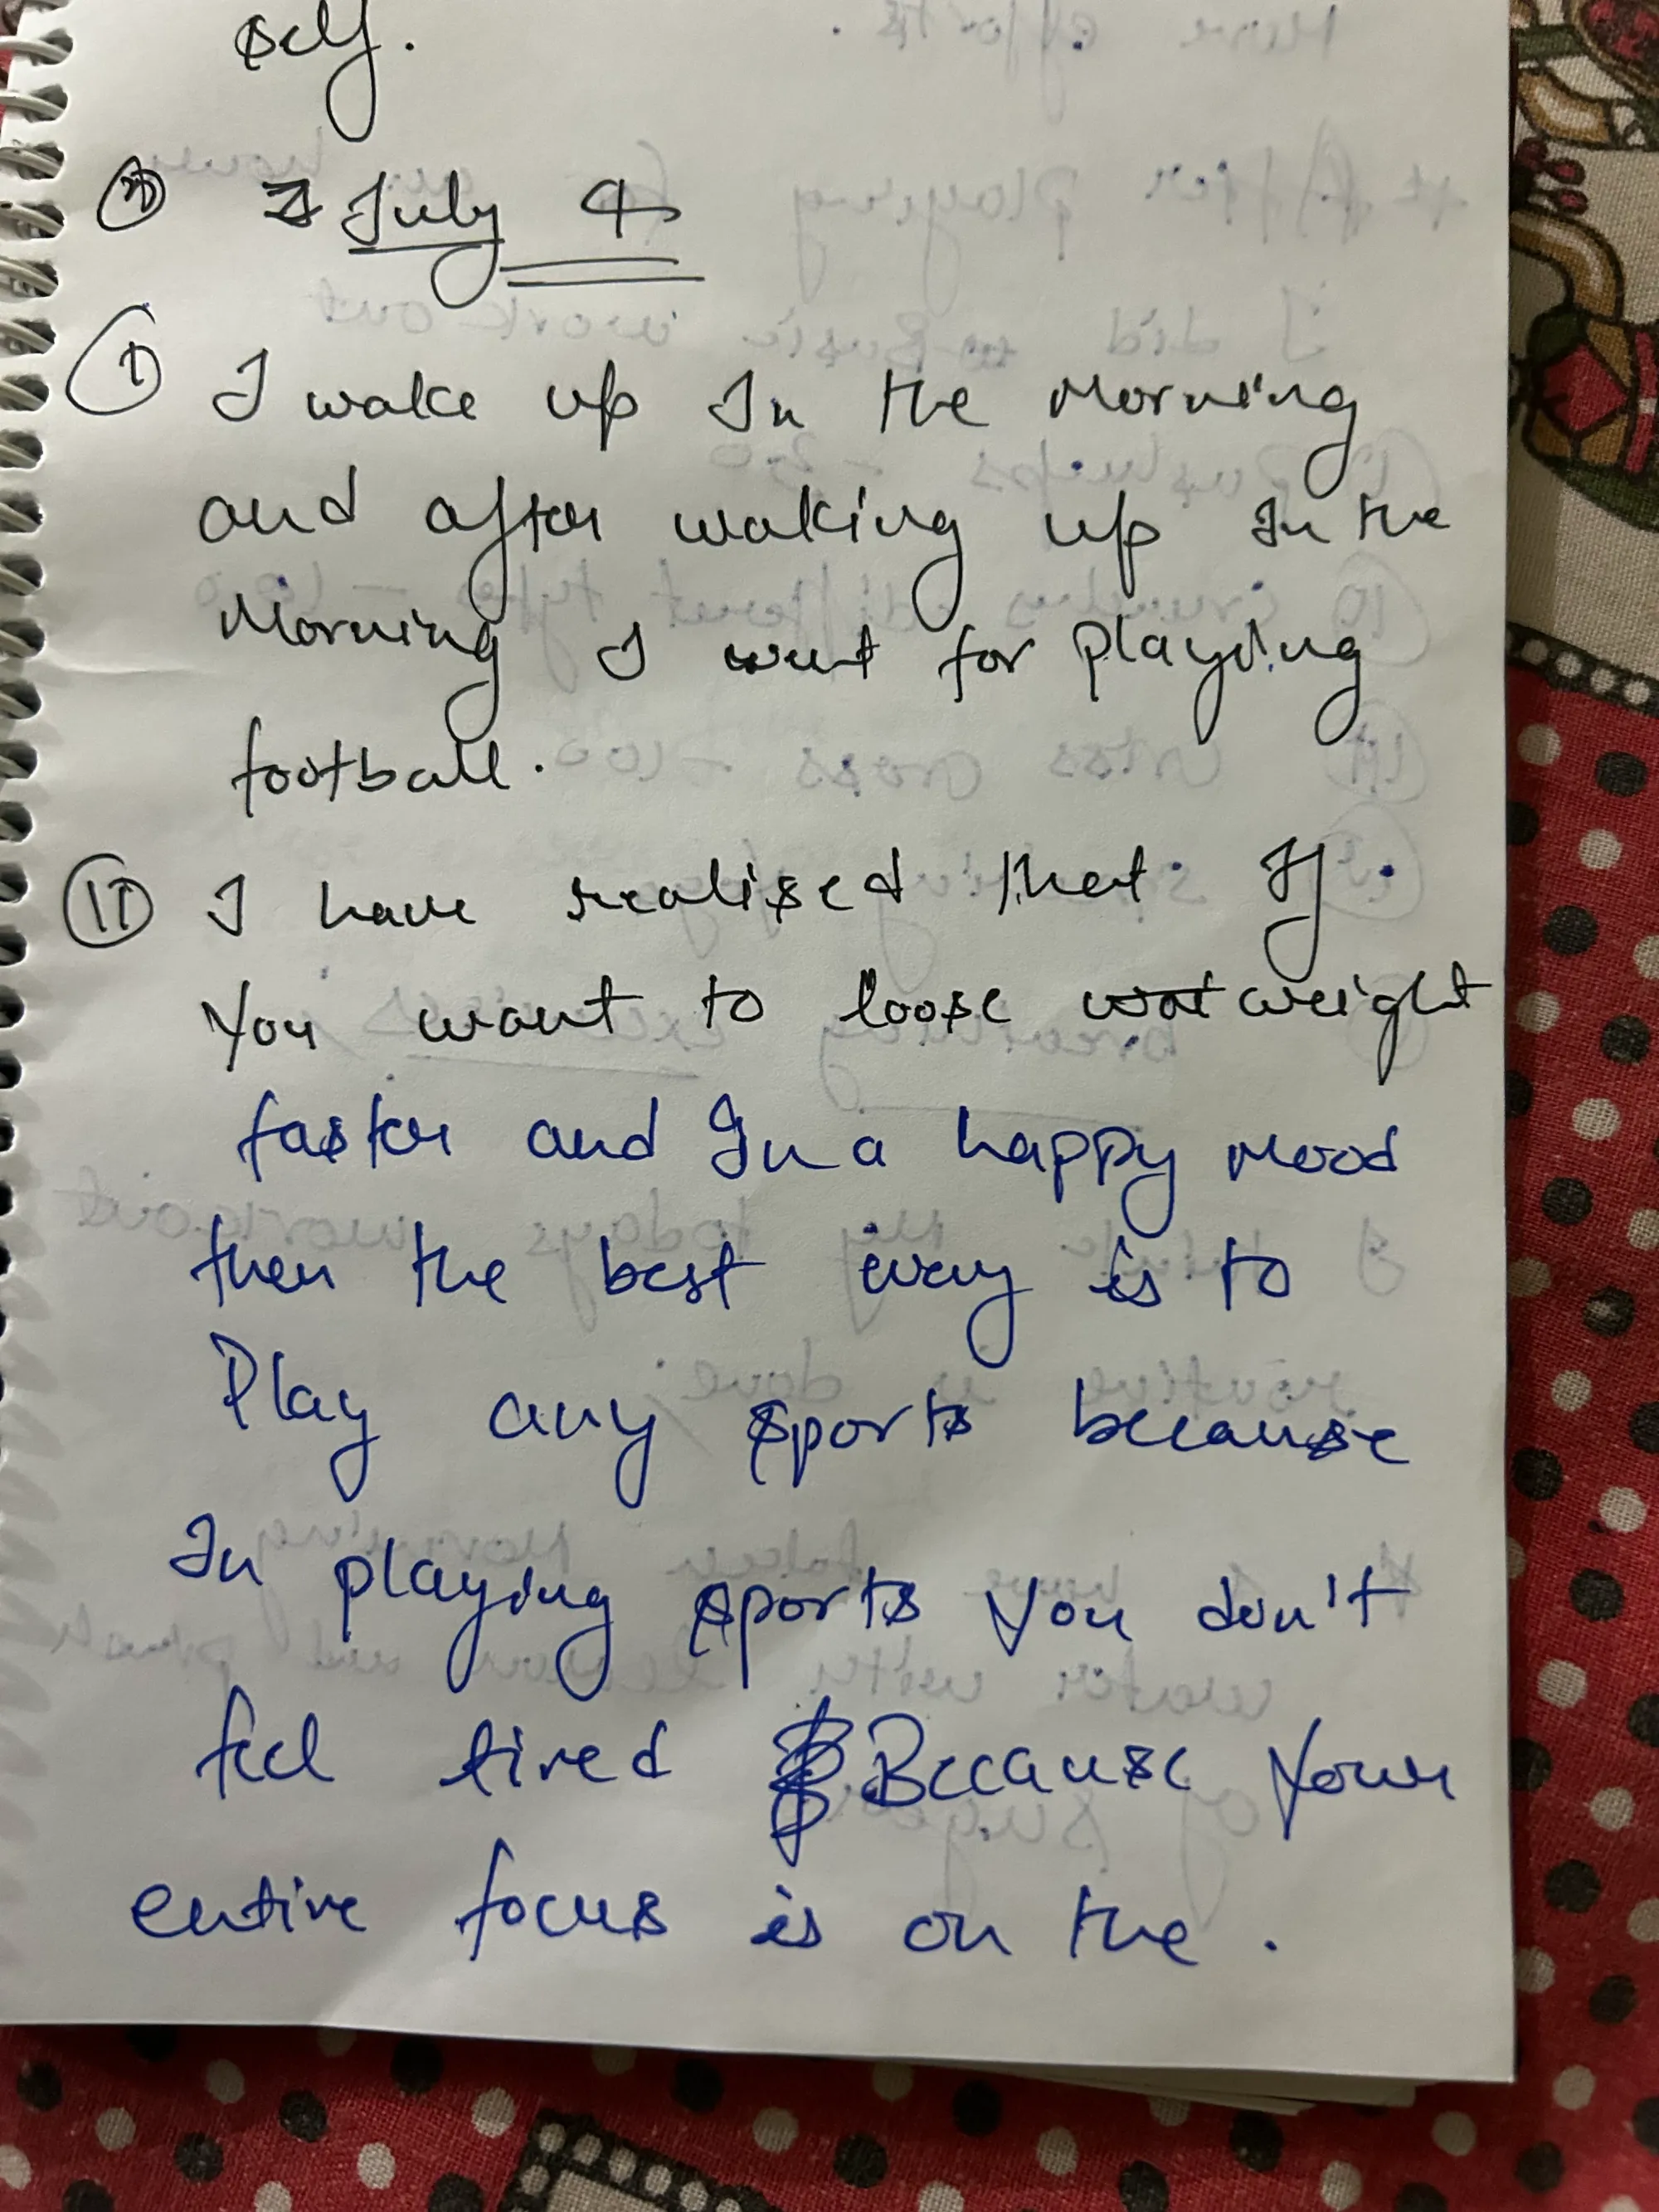 self.
July 4
I) I wake up In the Morning
and after waking up In the
Morning I went for playing
football.
II) I have realised that If
You want to loose weight
faster and In a happy Mood
then the best way is to
Play any sports because
In playing sports You don't
feel tired Because Your
entire focus is on the .